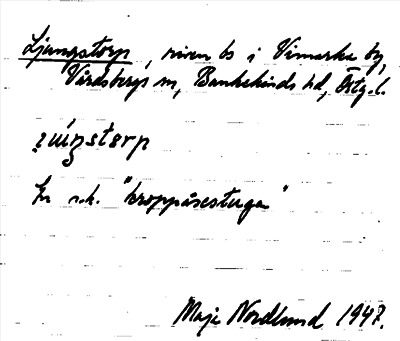 Ljungstorp, riven bs i Vimarka by,
Vårdsbergs sn, Bankekinds hd, Östg. l.
En s.k. "kroppåsestuga"
Maja Nordlund 1947.